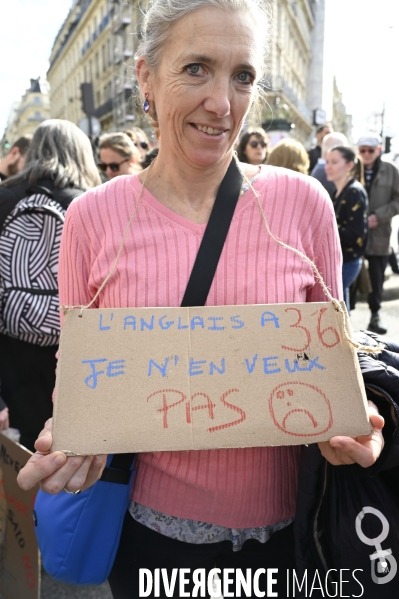 L'ANGLAIS A 36
JE N'EN VEUX
PAS
DIVERGENCE IMAGES